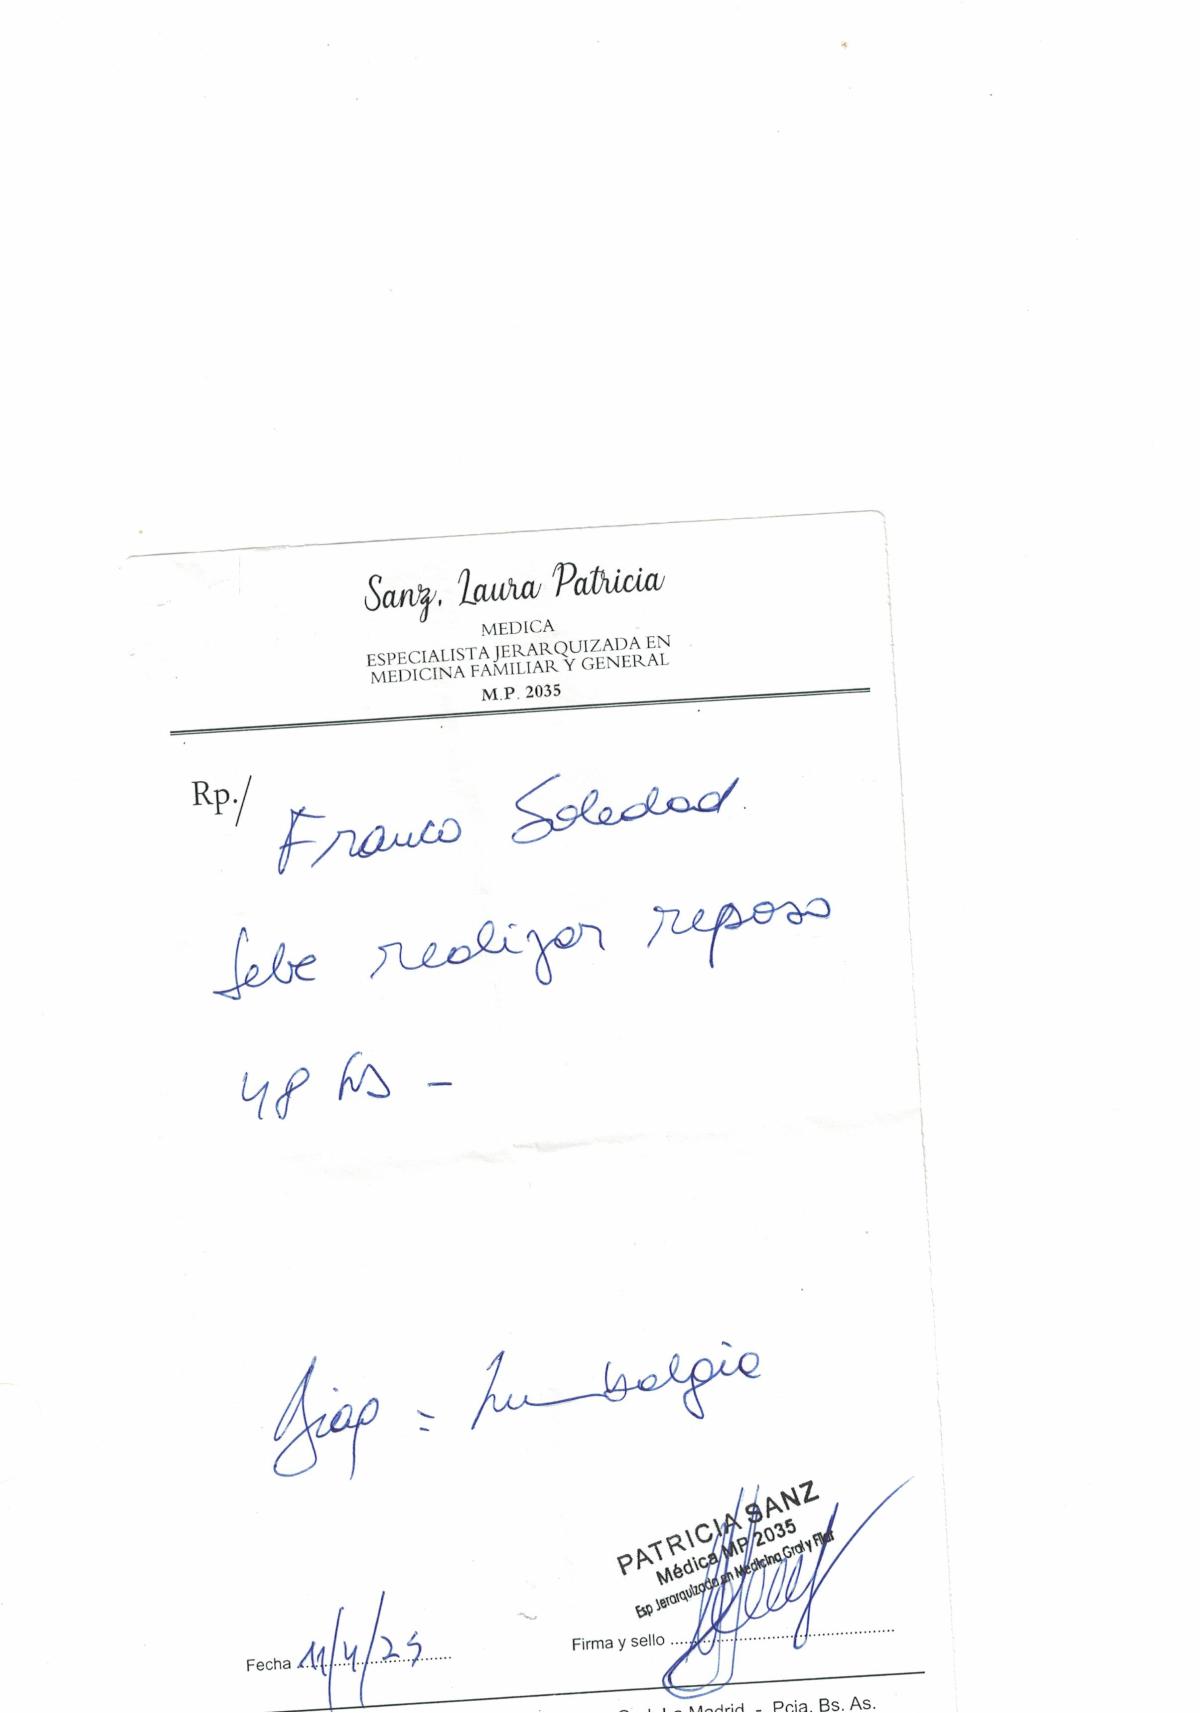 Sanz, Laura Patricia
MEDICA
ESPECIALISTA JERARQUIZADA EN
MEDICINA FAMILIAR Y GENERAL
M.P. 2035
Rp./
Franco Soledad.
Debe realizar reposo
48 hs -
Diag = Lumbalgia
PATRICIA SANZ
Médica MP 2035
Esp Jerarquizada en Medicina Gral y Fliar
Fecha 11/4/25
Firma y sello
La Madrid - Pcia. Bs. As.